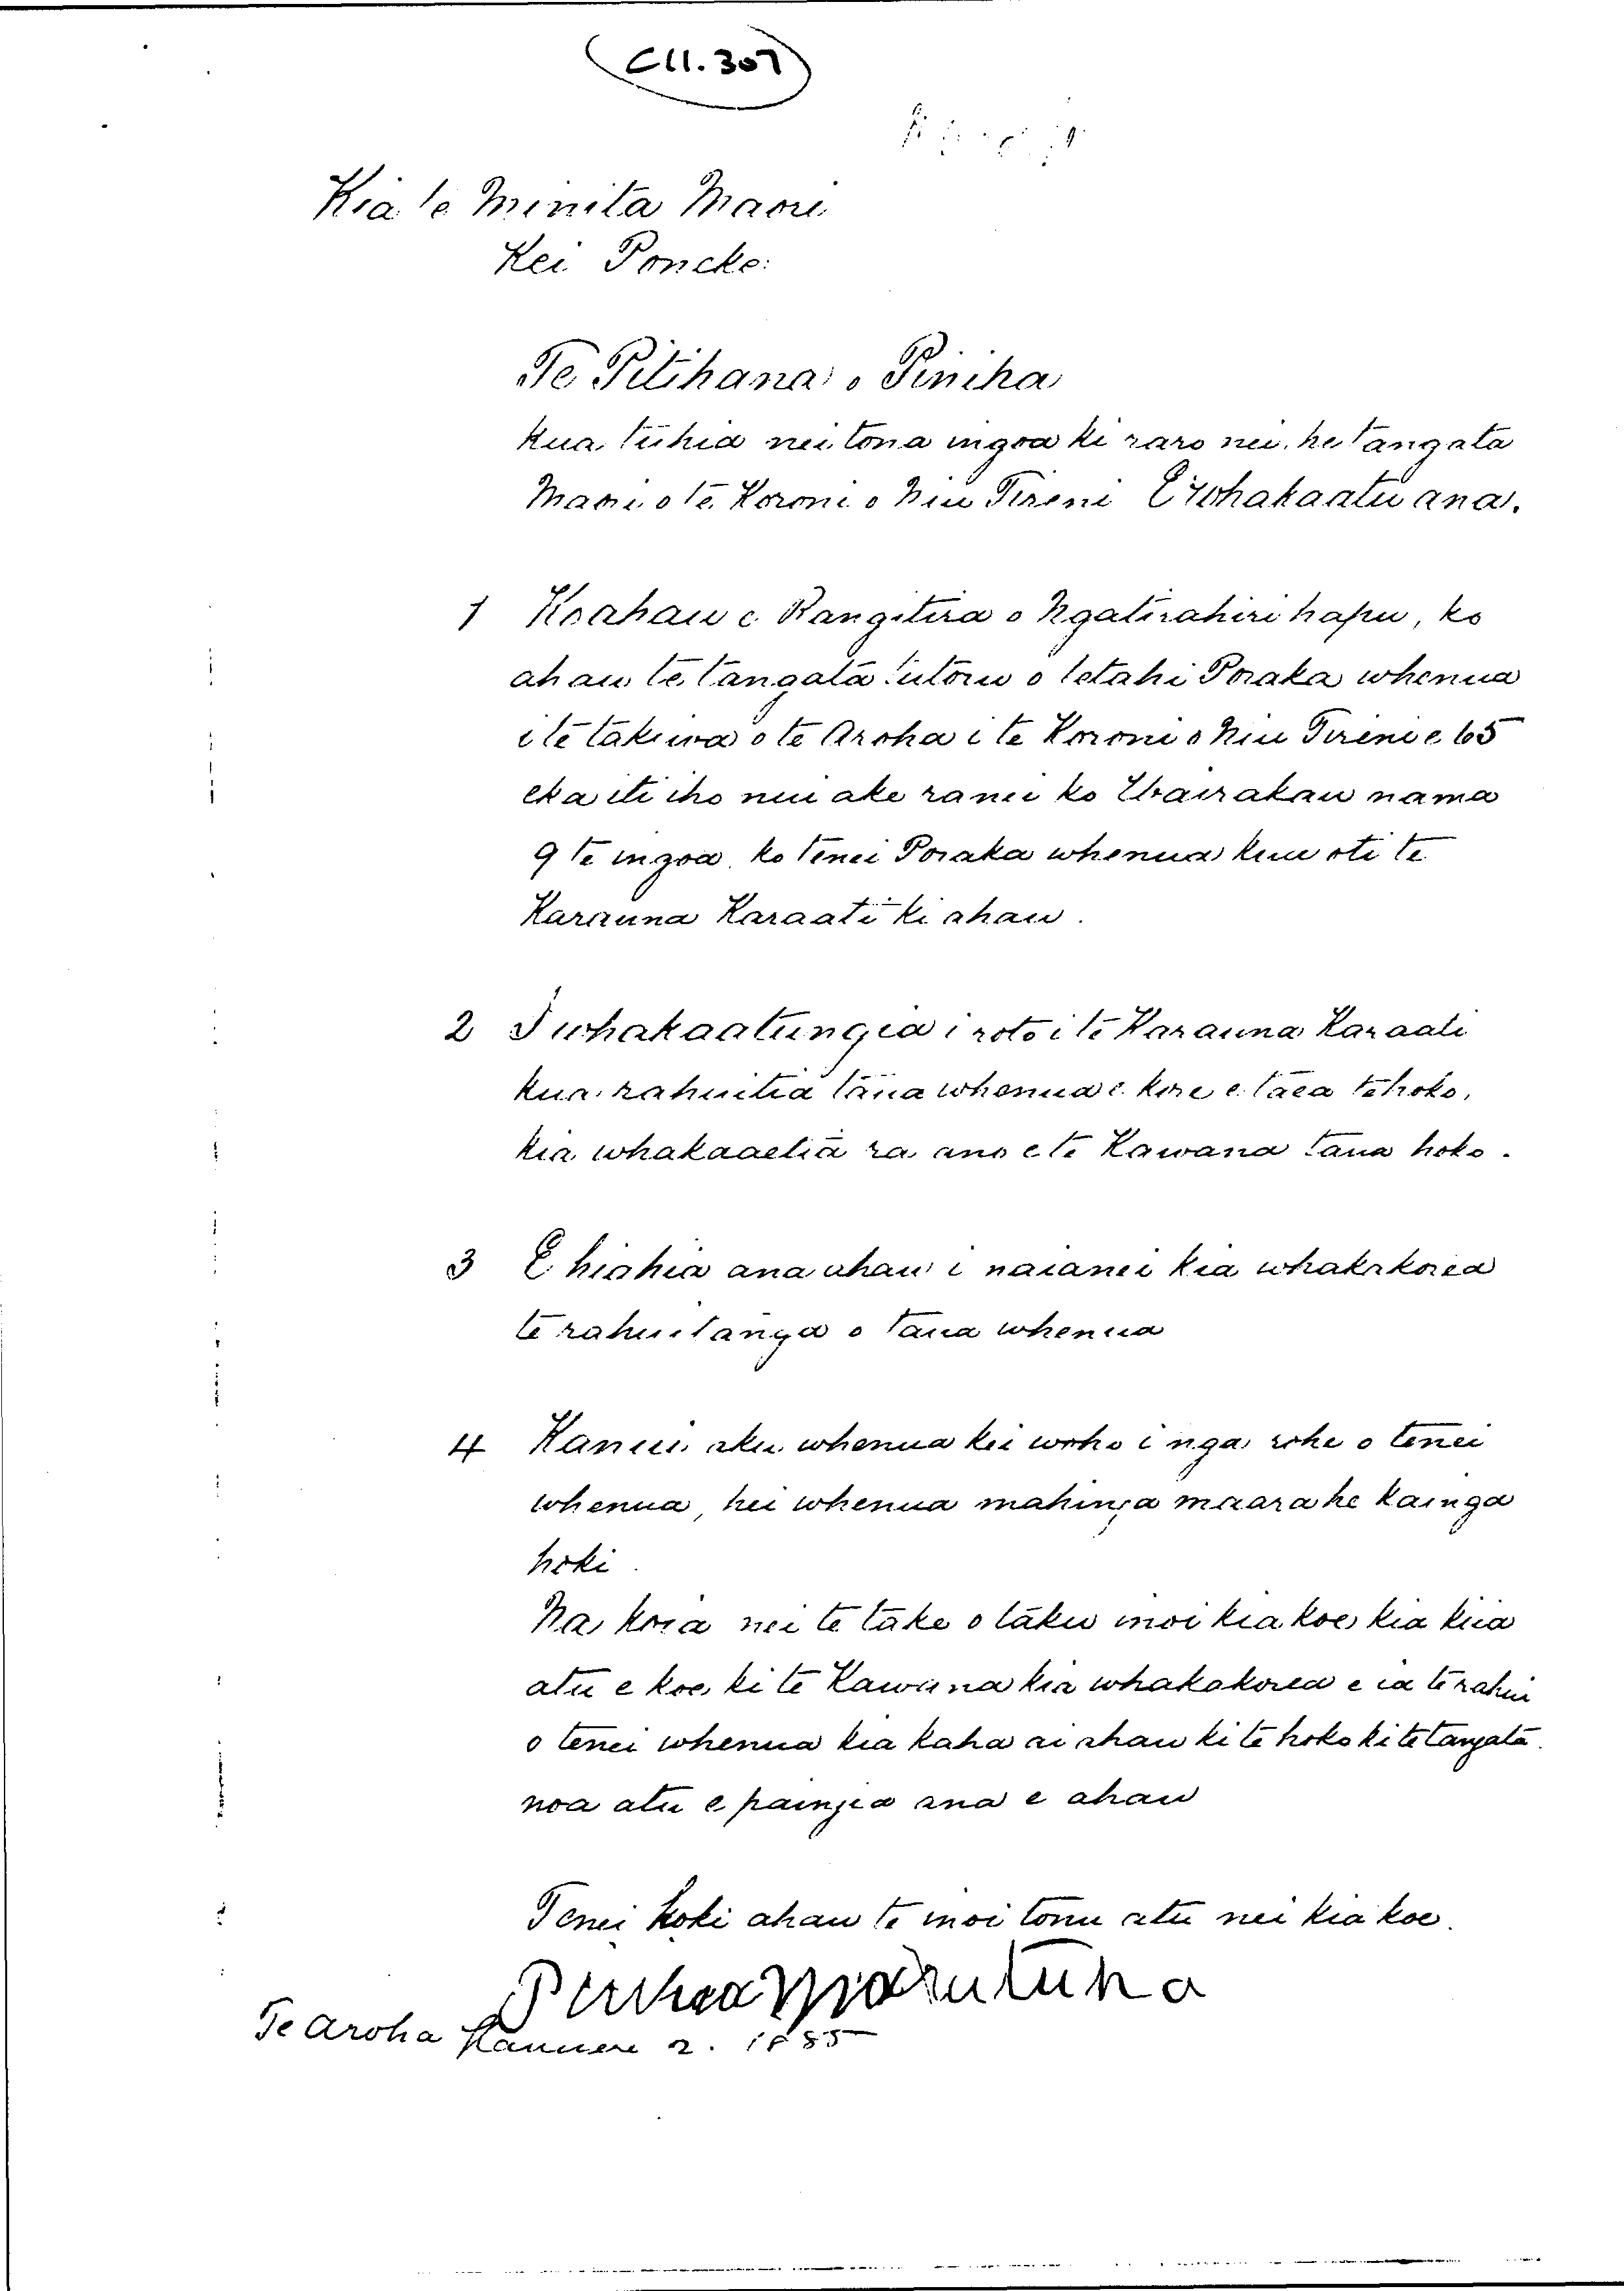 C11.307
Kia te Minita Maori
Kei Poneke:
Te Pitihana o Piniha
kua tuhia nei tona ingoa ki raro nei. he tangata
Maori o te Koroni o Niu Tireni E whakaatu ana.
1 Ko ahau e Rangitira o Ngatirahiri hapu, ko
ahau te tangata tuturu o tetahi Poraka whenua
i te takiwa o te Aroha i te Koroni o Niu Tireni e 65
eka iti iho nui ake ranei ko Wairakau nama
9 te ingoa. ko tenei Poraka whenua kua oti te
Karauna Karaati ki ahau.
2 I whakaatungia i roto i te Karauna Karaati
kua rahuitia taua whenua e kore e taea te hoko,
kia whakaaetia ra ano e te Kawana taua hoko.
3 E hiahia ana ahau i naianei kia whakakorea
te rahuitanga o taua whenua
4 Kanui aku whenua kei waho i nga rohe o tenei
whenua, hei whenua mahinga maara he kainga
hoki.
Na koia nei te take o taku inoi kia koe kia kiia
atu e koe ki te Kawana kia whakakorea e ia te rahui
o tenei whenua kia kaha ai ahau ki te hoko ki te tangata
noa atu e paingia ana e ahau
Tenei hoki ahau te inoi tonu atu nei kia koe.
Piniha Marutuna
Te Aroha Hanuere 2. 1885